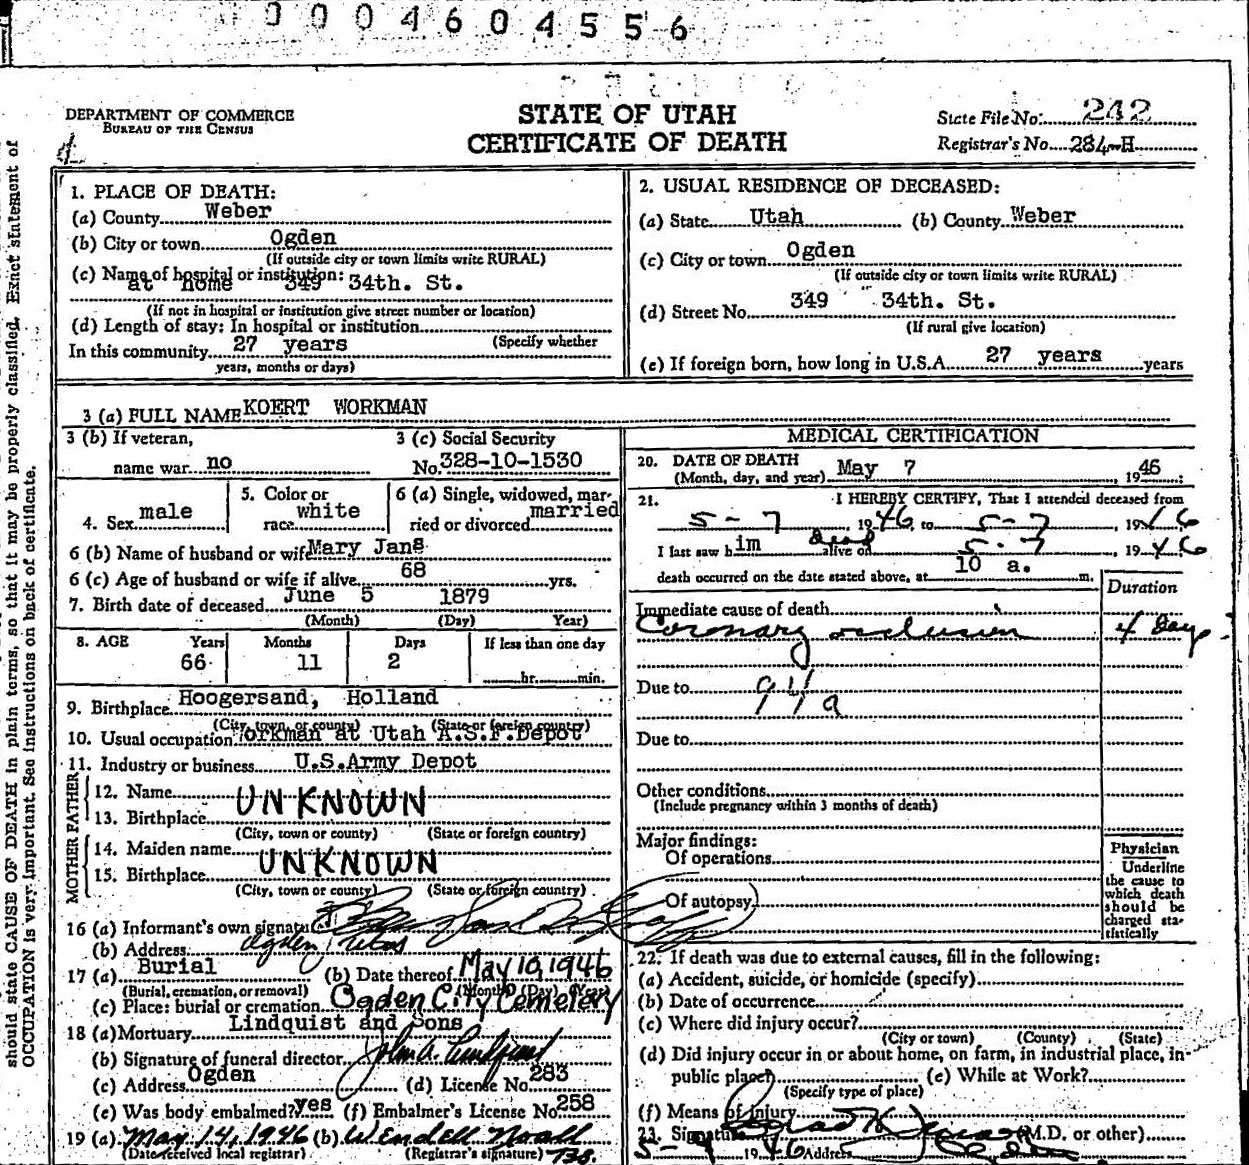 0004604556
DEPARTMENT OF COMMERCE
BUREAU OF THE CENSUS
STATE OF UTAH
CERTIFICATE OF DEATH
State File No. 242
Registrar's No. 284-H
should state CAUSE OF DEATH in plain terms, so that it may be properly classified. Exact statement of
OCCUPATION is very important. See instructions on back of certificate.
1. PLACE OF DEATH:
(a) County Weber
(b) City or town Ogden
(If outside city or town limits write RURAL)
(c) Name of hospital or institution:
at home 349 34th. St.
(If not in hospital or institution give street number or location)
(d) Length of stay: In hospital or institution
(Specify whether
In this community 27 years
years, months or days)
2. USUAL RESIDENCE OF DECEASED:
(a) State Utah (b) County Weber
(c) City or town Ogden
(If outside city or town limits write RURAL)
(d) Street No. 349 34th. St.
(If rural give location)
(e) If foreign born, how long in U.S.A. 27 years years
3 (a) FULL NAME KOERT WORKMAN
3 (b) If veteran,
name war no
3 (c) Social Security
No. 328-10-1530
4. Sex male
5. Color or
race white
6 (a) Single, widowed, mar-
ried or divorced married
6 (b) Name of husband or wife Mary Jane
6 (c) Age of husband or wife if alive 68 yrs.
7. Birth date of deceased June 5 1879
(Month) (Day) Year)
8. AGE Years Months Days If less than one day
66 11 2 hr. min.
9. Birthplace Hoogersand, Holland
(City, town, or county) (State or foreign country)
10. Usual occupation Workman at Utah A.S.F.Depot
11. Industry or business U.S.Army Depot
FATHER
12. Name UNKNOWN
13. Birthplace
(City, town or county) (State or foreign country)
MOTHER
14. Maiden name UNKNOWN
15. Birthplace
(City, town or county) (State or foreign country)
16 (a) Informant's own signature
(b) Address Ogden Utah
17 (a) Burial (b) Date thereof May 10, 1946
(Burial, cremation, or removal) (Month) (Day) (Year)
(c) Place: burial or cremation Ogden City Cemetery
18 (a) Mortuary Lindquist and Sons
(b) Signature of funeral director John A. Lindquist
(c) Address Ogden (d) License No. 283
(e) Was body embalmed? yes (f) Embalmer's License No. 258
19 (a) May 14, 1946 (b) Wendell Noall
(Date received local registrar) (Registrar's signature)
MEDICAL CERTIFICATION
20. DATE OF DEATH
(Month, day, and year) May 7 1946
21. I HEREBY CERTIFY, That I attended deceased from
5-7, 1946 to 5-7, 1946
I last saw him dead alive on 5-7, 1946
death occurred on the date stated above, at 10 a. m.
Duration
Immediate cause of death
Coronary occlusion 4 Days
Due to 94a
Due to
Other conditions
(Include pregnancy within 3 months of death)
Major findings:
Of operations
Of autopsy
Physician
Underline
the cause to
which death
should be
charged sta-
tistically
22. If death was due to external causes, fill in the following:
(a) Accident, suicide, or homicide (specify)
(b) Date of occurrence
(c) Where did injury occur?
(City or town) (County) (State)
(d) Did injury occur in or about home, on farm, in industrial place, in
public place? (e) While at Work?
(Specify type of place)
(f) Means of injury
23. Signature (M.D. or other)
1946 Address